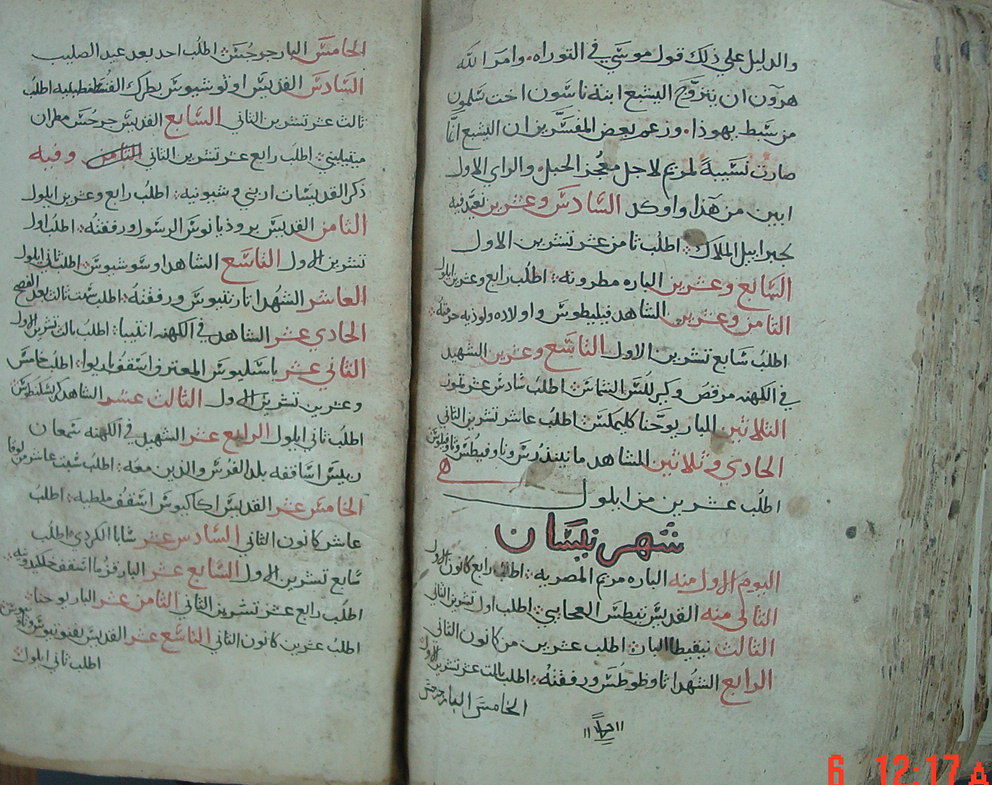 والدليل على ذلك قول موسي في التوراه. وامر الله
هرون ان يتزوج اليشبع ابنة ناسون اخت سلمون
من سبط يهوذا. وزعم بعض المفسرين ان اليشبع انما
صارت نسيبة لمريم لاجل معجز الحبل. والراي الاول
ابين من هذا واوكد السادس وعشرين نعيد فيه
لجبراييل الملاك اطلب ثامن عشر تشرين الاول
السابع وعشرين الباره مطرونه: اطلب رابع وعشرين ايلول
الثامن وعشرين الشاهد فيليطوس واولاده ولوذيه حرمته:
اطلب سابع تشرين الاول التاسع وعشرين الشهيد
في الكهنه مرقص وكيرللس الشماس: اطلب سادس عشر تموز
الثلاثين البار يوحنا كليمكس: اطلب عاشر تشرين الثاني
الحادي وثلاثين الشاهد مانيندرس
اطلب عشرين من ايلول
شهر نيسان
اليوم الاول منه الباره مريم المصريه: اطلب رابع كانون الاول
الثاني منه القديس تيطس العجايبي: اطلب اول تشرين الثاني
الثالث نيقيطا البار: اطلب عشرين من كانون الثاني
الرابع الشهدا ثاوظوطس ورفقته: اطلب ثالث عشر تشرين الاول
الخامس البار جرجس
الخامس البار جرجس: اطلب احد بعد عيد الصليب
السادس القديس اوتوشيوس بطرك القسطنطينيه اطلب
ثالث عشر تشرين الثاني السابع القديس جرجس مطران
ميتيليني: اطلب رابع عشر تشرين الثاني الثامن وفيه
ذكر القديسان اديني وشيونيه: اطلب رابع وعشرين ايلول
الثامن القديس يروذيانوس الرسول ورفقته: اطلب اول
تشرين الاول التاسع الشاهد اوسوشيوس: اطلب ثاني ايلول
العاشر الشهدا تارنتيوس ورفقته: اطلب سبت ثالث بعد الفصح
الحادي عشر الشاهد في الكهنه انتيبا: اطلب ثالث تشرين الاول
الثاني عشر باسليوس المعترف اسقف باريوا: اطلب خامس
وعشرين تشرين الاول الثالث عشر الشاهد
اطلب ثاني ايلول الرابع عشر الشهيد في الكهنه شمعان
رييس اساقفه بلد الفرس والذين معه: اطلب سبت عاشر من لوقا
الخامس عشر القديس اكاكيوس اسقف ملطيه: اطلب
عاشر كانون الثاني السادس عشر سابا الكردي اطلب
سابع تشرين الاول السابع عشر البار قزما اسقف خلكيدونيه:
اطلب رابع عشر تشرين الثاني الثامن عشر البار يوحنا
اطلب عشرين كانون الثاني التاسع عشر القديس
اطلب ثاني ايلول
6 12:17